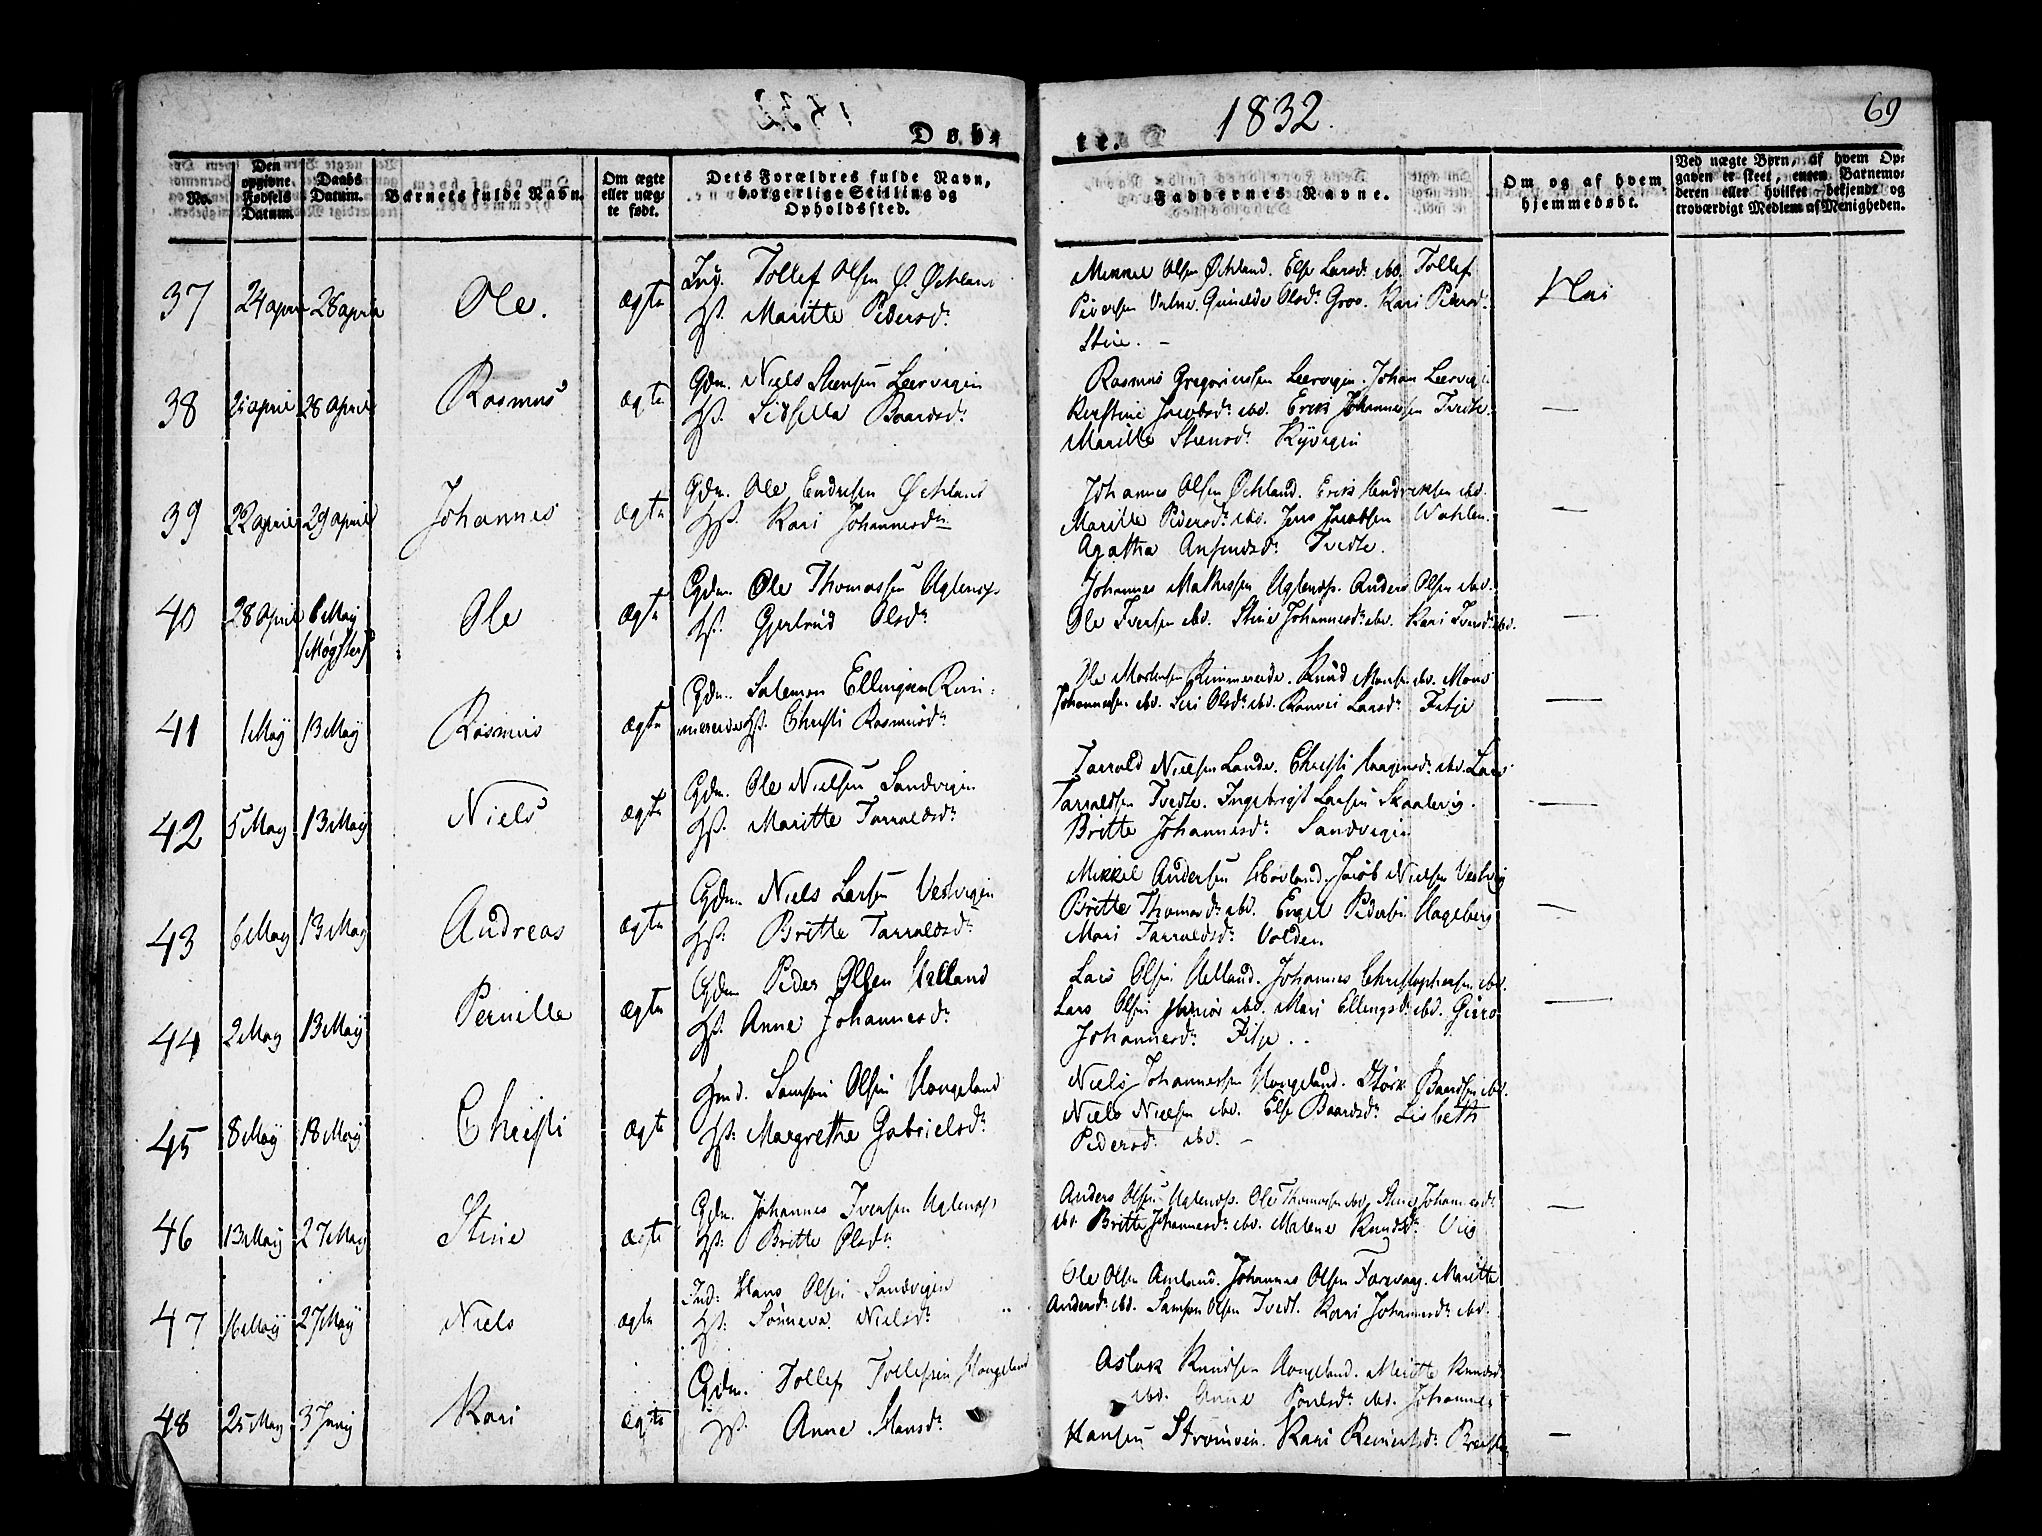 Døbte.
1832.
69
No.
Den opgivne Fødsels Datum.
Daabs Datum.
Barnets fulde Navn.
Om ægte eller uægte født.
Dets Forældres fulde Navn, borgerlige Stilling og Opholdssted.
Faddernes Navne.
Om og af hvem hjemmedøbt.
Ved uægte Børn, af hvem Opgaven er skeet, enten Barnemoderen eller hvilket bekjendt og troværdigt Medlem af Menigheden.
37 24 april 28 april Ole. ægte Tollef Olsen Ø. Øchland
Hst. Maritte Pedersdr.
Mikkel Olsen Øchland. Else Larsd. ibd. Tollef
Pedersen Gunilde Olsdr. Groo. Kari Pedersdr.
Stine. –
Nei
38 april 28 april Rasmus ægte Gdm. Niels Steensen Leervigen
Hst. Sidsella Baardsdr.
Rasmus Gregoriussen Leervigen. Johan Leervig
Kirstine Jacobsdr. ibd. Erik Johannessen Tvedte.
Maritte Steensdr. Rÿvigen
—
39 22 april 29 april Johannes ægte Gdm. Ole Endresen Øchland
Hst. Kari Johannesdr.
Johannes Olsen Øchland. Erik Hendriksen ibd.
Maritte Pedersdr. ibd. Jens Jacobsen Wahlen.
Agatha Ansendsdr. Tvedte.
—
40 28 April 6 May (Møgster) Ole ægte Gdm. Ole Thomassen
Hst. Gjertrud Olsdr.
Johannes Mathissen Anders Olsen ibd.
Ole Iversen ibd. Stine Johannesdr. ibd. Kari Iversdr. ibd.
—
41 1 Maÿ 13 Maÿ Rasmus ægte Gdm. Salemon Ellingsen Rim-
mereide Hst. Christi Rasmusdr.
Ole Mortensen Rimmereide. Knud Monsen ibd. Mons
Johannessen ibd. Siri Olsdr. ibd. Ranvei Larsdr. Fitje
—
42 5 May 13 Maÿ Niels ægte Gdm. Ole Nielsen Sandvigen
Hst. Maritte Tarraldsdr.
Tarrald Nielsen Lande. Christi ibd. Lars
Tarraldsen Tvedte. Ingebrigt Larsen Skaalevig.
Britte Johannesdr. Sandvigen
—
43 6 May 13 May Andreas ægte Gdm. Niels Larsen Vestvigen
Hst. Britte Tarraldsdr.
Mikkel Andersen Jacob Nielsen Vestvig
Britte Thomasdr. ibd. Engel Pedersen Hageberg
Mari Tarraldsdr. Volden.
—
44 2 May 13 Maÿ Pernille ægte Gdm. Peder Olsen Helland
Hst. Anne Johannesdr.
Lars Olsen Helland. Johannes Christophersen ibd.
Lars Olsen junior ibd. Mari Ellingsdr. ibd. Giøro
Johannesdr. Fitje. .
—
45 8 Maÿ 18 Maÿ Christi ægte Hmd. Samson Olsen Hougeland
Hst: Margrethe Gabrielsdr.
Niels Johannessen Hougeland. Størk Baardsen ibd.
Niels Nielsen ibd. Else Baardsdr. Lisbeth
Pedersdr. ibd. –
46 13 Maÿ 27 May Stine ægte Gdm. Johannes Iversen
Hst. Britte Olsdr.
Anders Olsen Ole Thomassen ibd. Stine Johannesdr.
ibd. Britte Johannesdr. ibd. Malene Knudsdr. Viig
—
47 16 Maÿ 27 Maÿ Niels ægte Ind: Hans Olsen Sandvigen
Hst: Sønneva Nielsdr.
Ole Olsen Amland. Johannes Olsen Færevaag. Maritte
Andersdr. ibd. Samson Olsen Tvedt. Kari Johannesdr. ibd.
48 25 May 3 Junÿ Kari ægte Gdm. Tollef Tollefsen Hougeland
Hst. Anne Hansdr.
Aslak Knudsen Hougeland. Maritte Knudsdr.
ibd. Anne Poulsdr. ibd. Johannes
Hansen Strømøen. Kari Reinertsdr.
—